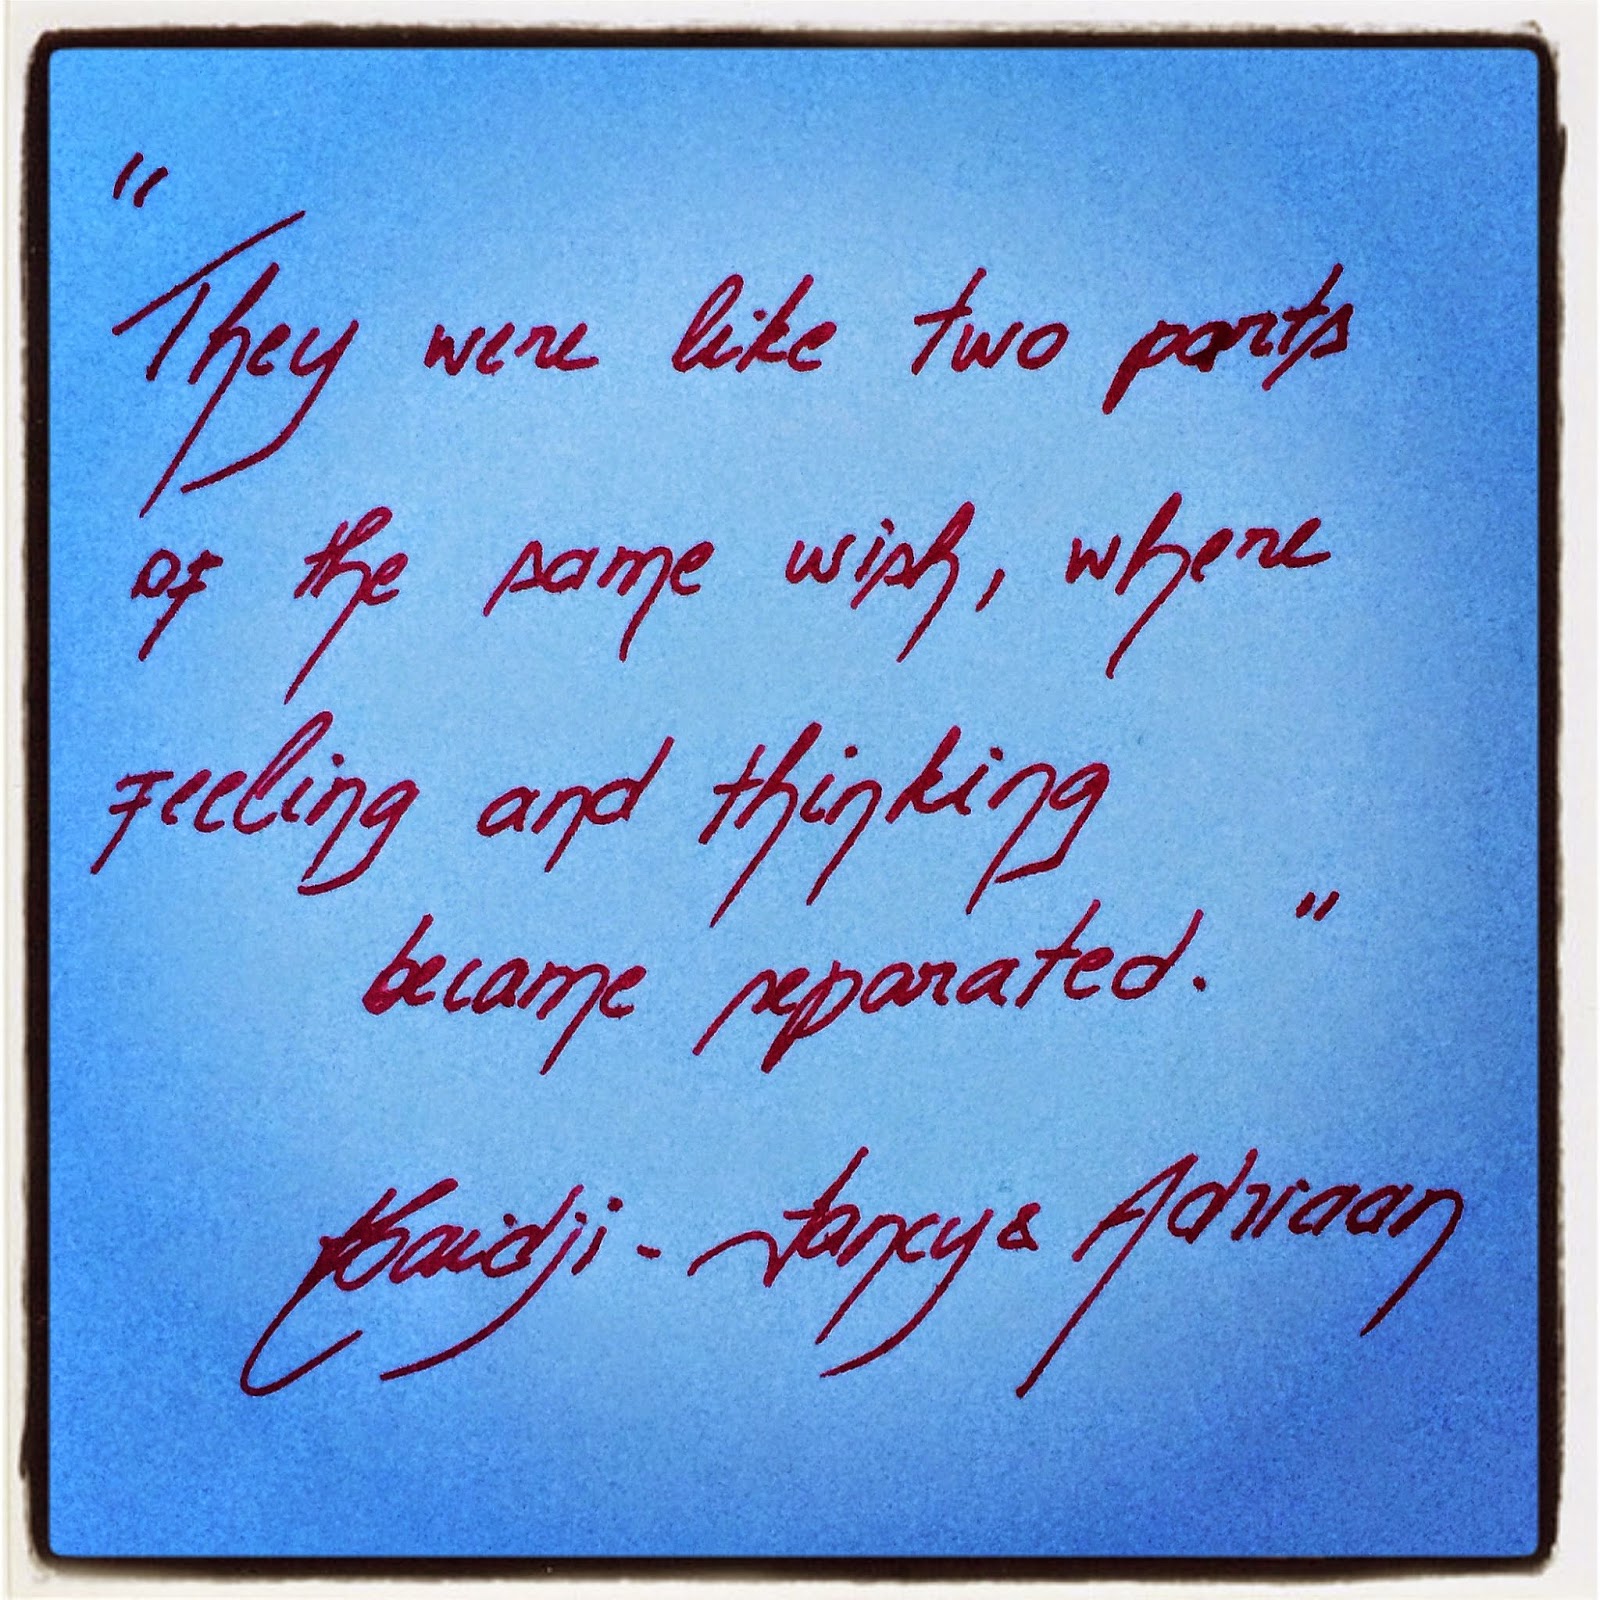 "They were like two parts
of the same wish, where
feeling and thinking
became separated."
- & Adriaan